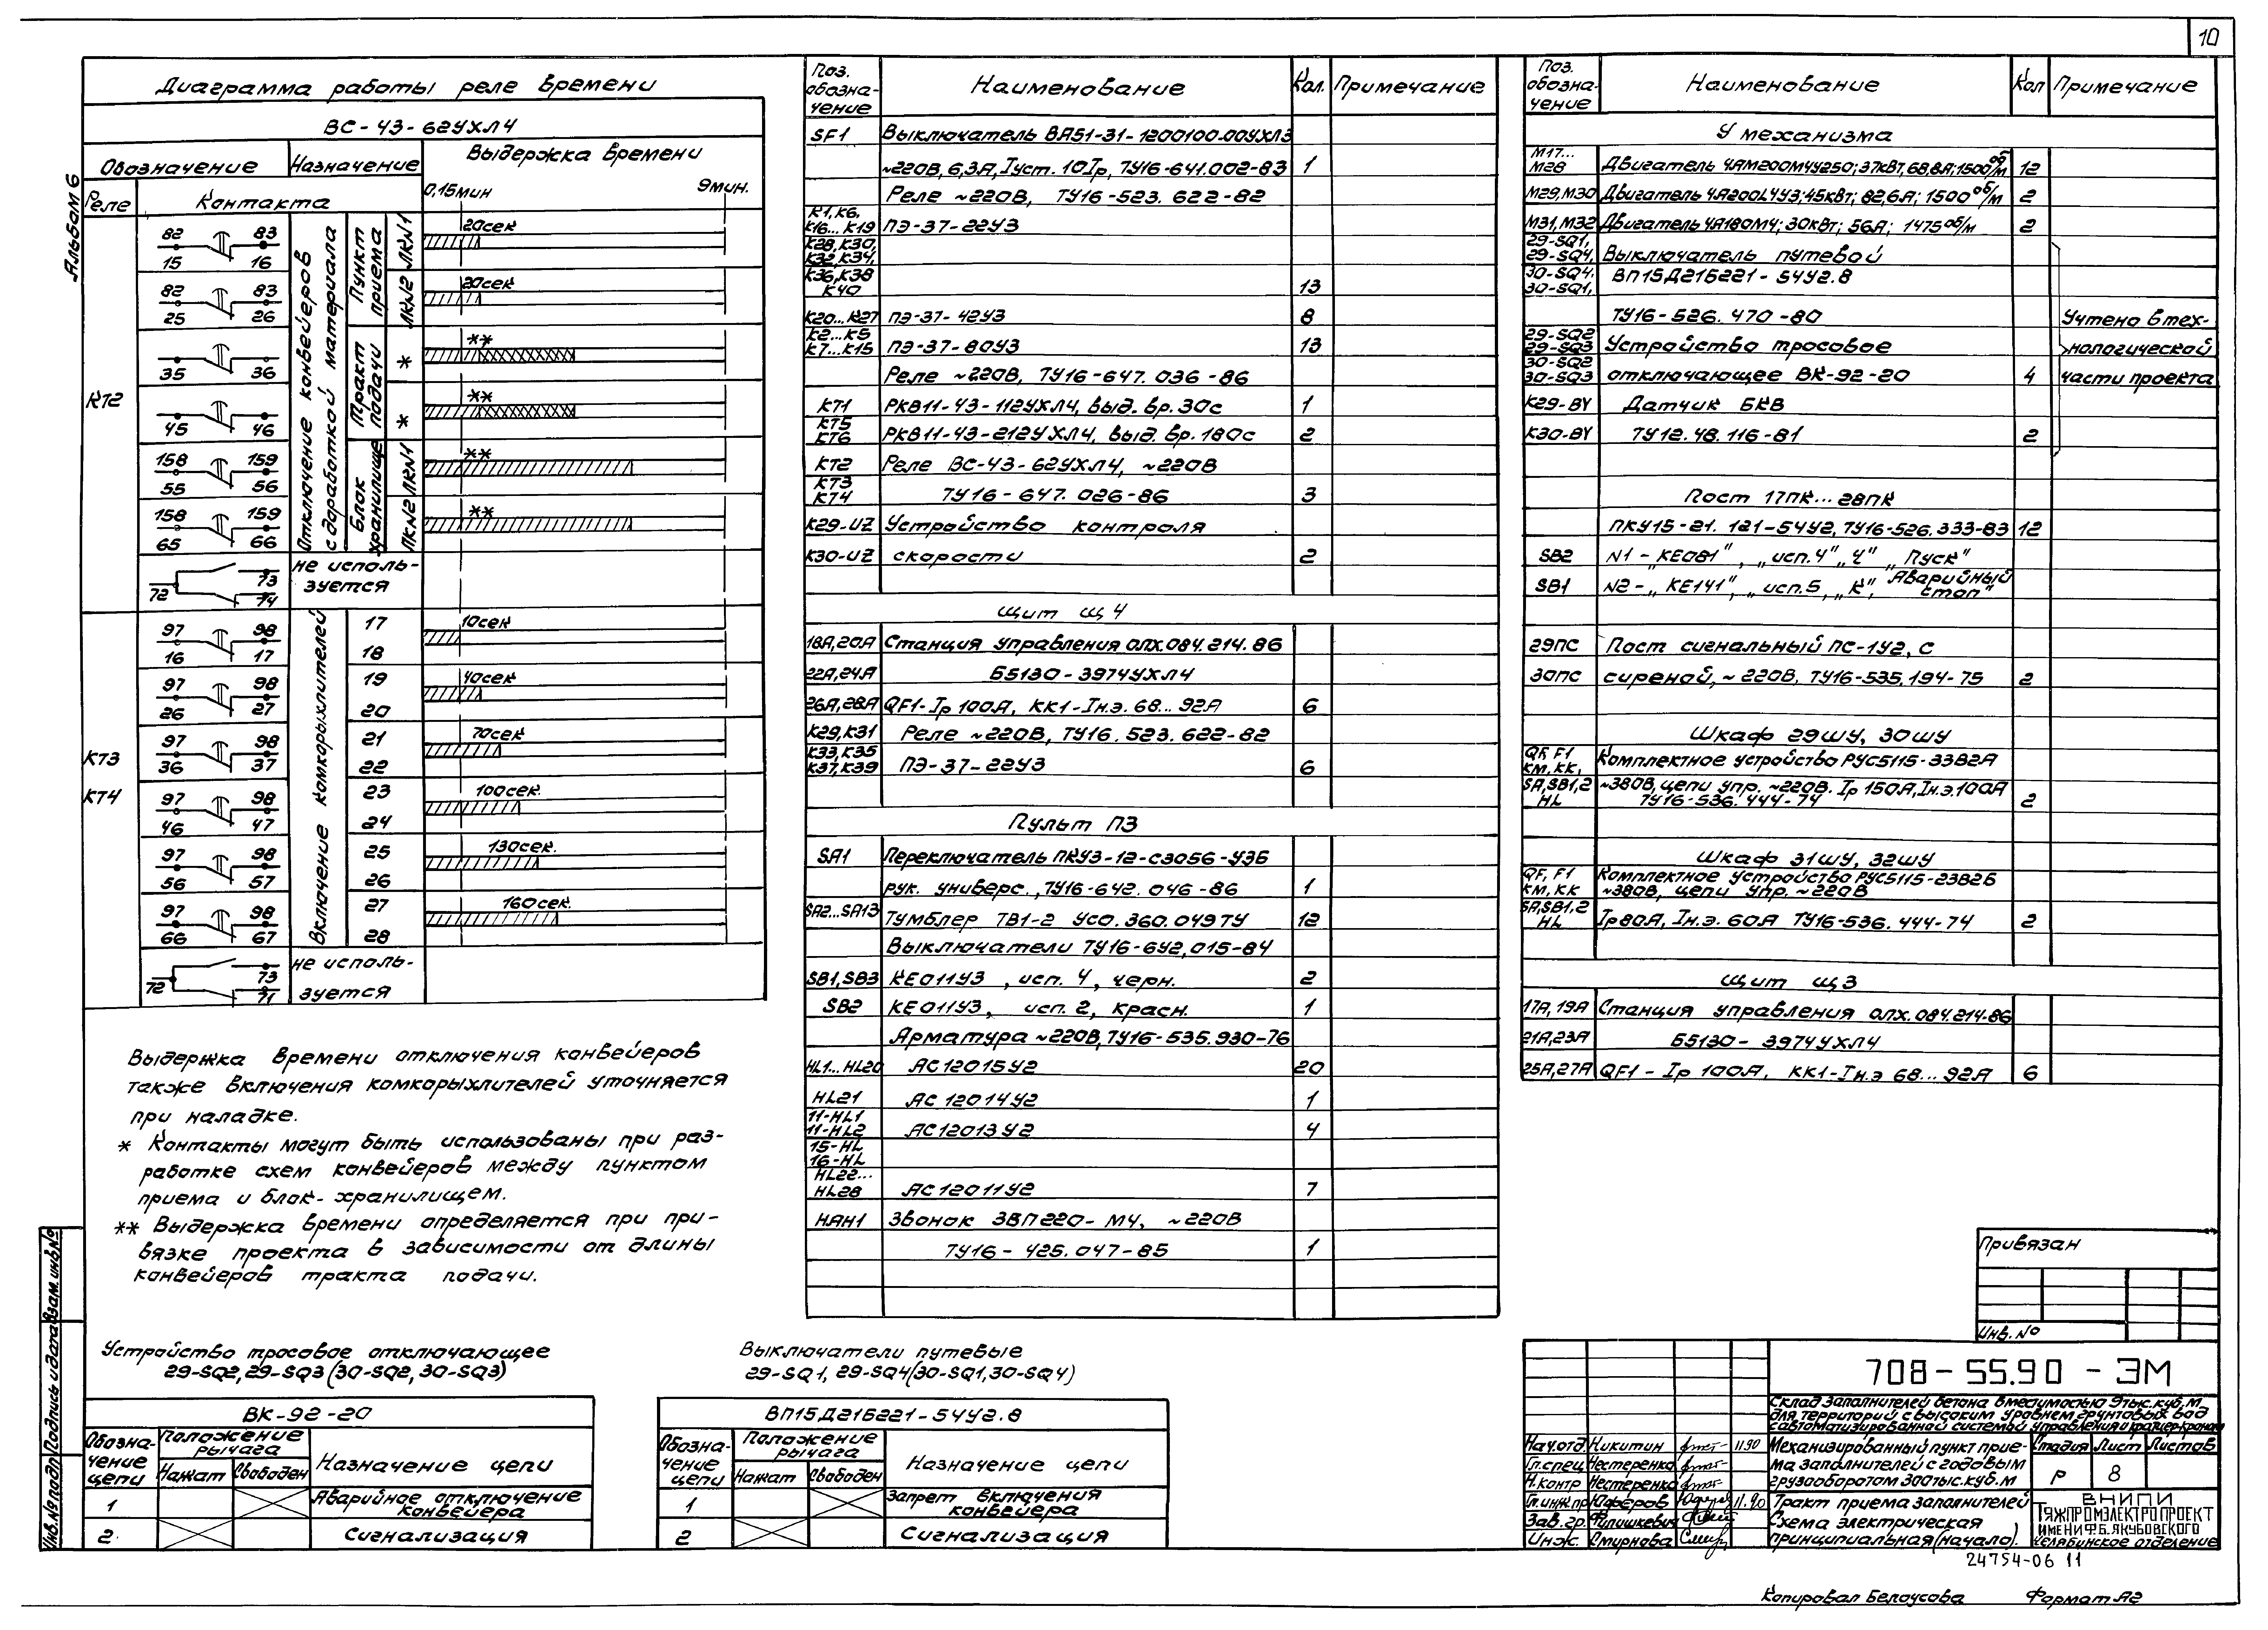 10
Альбом 6
Диаграмма работы реле времени
ВС-43-62УХЛ4
Обозначение
Назначение
Выдержка времени
Реле
Контакта
0,15мин
9мин.
КТ2
82 83
15 16
82 83
25 26
35 36
45 46
158 159
55 56
158 159
65 66
72 73
74
Отключение конвейеров
с доработкой материала
Пункт приема
ЛКN1
ЛКN2
Тракт подачи
*
*
Блок хранилище
ЛКN1
ЛКN2
20сек
20сек
**
**
**
**
не исполь-
зуется
КТ3
КТ4
97 98
16 17
97 98
26 27
97 98
36 37
97 98
46 47
97 98
56 57
97 98
66 67
72 73
71
Включение комкорыхлителей
17
18
19
20
21
22
23
24
25
26
27
28
10сек
40сек
70сек
100сек.
130сек.
160сек.
не исполь-
зуется
Выдержка времени отключения конвейеров
также включения комкорыхлителей уточняется
при наладке.
* Контакты могут быть использованы при раз-
работке схем конвейеров между пунктом
приема и блок-хранилищем.
** Выдержка времени определяется при при-
вязке проекта в зависимости от длины
конвейеров тракта подачи.
Устройство тросовое отключающее
29-SQ2, 29-SQ3 (30-SQ2, 30-SQ3)
ВК-92-20
Обозна-
чение
цепи
Положение
рычага
Нажат
Свободен
Назначение цепи
1
Аварийное отключение
конвейера
2
Сигнализация
Выключатели путевые
29-SQ1, 29-SQ4 (30-SQ1, 30-SQ4)
ВП15Д21Б221-54У2.8
Обозна-
чение
цепи
Положение
рычага
Нажат
Свободен
Назначение цепи
1
Запрет включения
конвейера
2
Сигнализация
Поз.
обозна-
чение
Наименование
Кол.
Примечание
SF1 Выключатель ВА51-31-1200100.00УХЛ3
~220В, 6,3А, Iуст. 10Iр, ТУ16-641.002-83 1
Реле ~220В, ТУ16-523.622-82
К1, К6,
К16...К19 ПЭ-37-22У3
К28, К30,
К32, К34,
К36, К38
К40 13
К20...К27 ПЭ-37-42У3 8
К2...К5
К7...К15 ПЭ-37-80У3 13
Реле ~220В, ТУ16-647.036-86
КТ1 РКВ11-43-112УХЛ4, выд. вр. 30с 1
КТ5
КТ6 РКВ11-43-212УХЛ4, выд. вр. 180с 2
КТ2 Реле ВС-43-62УХЛ4, ~220В
КТ3
КТ4 ТУ16-647.026-86 3
К29-UZ Устройство контроля
К30-UZ скорости 2
Щит Щ4
18А, 20А Станция управления ОЛХ.084.214.86
22А, 24А Б5130-3974УХЛ4
26А, 28А QF1-Iр 100А, КК1-Iн.э. 68...92А 6
К29, К31 Реле ~220В, ТУ16.523.622-82
К33, К35
К37, К39 ПЭ-37-22У3 6
Пульт П3
SA1 Переключатель ПКУ3-12-С3056-У3Б
рук. универс., ТУ16-642.046-86 1
SA2...SA13 Тумблер ТВ1-2 УСО.360.049ТУ 12
Выключатели ТУ16-642,015-84
SB1, SB3 КЕ011У3, исп. 4, черн. 2
SB2 КЕ011У3, исп. 2, красн. 1
Арматура ~220В, ТУ16-535.930-76
HL1...HL20 АС12015У2 20
HL21 АС12014У2 1
11-HL1
11-HL2 АС12013У2 4
15-HL
16-HL
HL22...
HL28 АС12011У2 7
НАН1 Звонок ЗВП220-М4, ~220В
ТУ16-425.047-85 1
Поз.
обозна-
чение
Наименование
Кол
Примечание
У механизма
М17...
М28 Двигатель 4АМ200М4У250; 37кВт, 68,8А; 1500об/м 12
М29, М30 Двигатель 4А200L4У3; 45кВт; 82,6А; 1500об/м 2
М31, М32 Двигатель 4А180М4; 30кВт; 56А; 1475об/м 2
29-SQ1,
29-SQ4, Выключатель путевой
30-SQ4, ВП15Д21Б221-54У2.8
30-SQ1,
ТУ16-526.470-80
Учтено в тех-
нологической
части проекта
29-SQ2
29-SQ3 Устройство тросовое
30-SQ2
30-SQ3 отключающее ВК-92-20 4
К29-BY Датчик БКВ
К30-BY ТУ12.48.116-81 2
Пост 17ПК...28ПК
ПКУ15-21.121-54У2, ТУ16-526.333-83 12
SB2 N1-„КЕ081", „исп.4" „Ч" „Пуск"
SB1 N2-„КЕ141", „исп.5, „К", „Аварийный
стоп"
29ПС Пост сигнальный ПС-1У2, с
30ПС сиреной, ~220В, ТУ16-535.194-75 2
Шкаф 29ШУ, 30ШУ
QF, F1
КМ, КК, Комплектное устройство РУС5115-33В2А
SA, SB1,2
HL ~380В, цепи упр. ~220В. Iр 150А, Iн.э. 100А
ТУ16-536.444-74 2
Шкаф 31ШУ, 32ШУ
QF, F1
КМ, КК Комплектное устройство РУС5115-23В2Б
~380В, цепи упр. ~220В
SA, SB1,2
HL Iр80А, Iн.э. 60А ТУ16-536.444-74 2
Щит Щ3
17А, 19А Станция управления ОЛХ.084.214.86
21А, 23А Б5130-3974УХЛ4
25А, 27А QF1-Iр 100А, КК1-Iн.э 68...92А 6
Привязан
Инв. №
708-55.90-ЭМ
Склад заполнителей бетона вместимостью 9 тыс.куб.м
для территорий с высоким уровнем грунтовых вод
с автоматизированной системой управления
Нач.отд. Никитин 11.90
Гл.спец Нестеренко
Н.контр Нестеренко
Гл.инж.пр Юферов 11.90
Зав.гр. Филишкевич
Инж. Смирнова
Механизированный пункт прие-
ма заполнителей с годовым
грузооборотом 300тыс.куб.м
Стадия Лист Листов
Р 8
Тракт приема заполнителей
Схема электрическая
принципиальная (начало).
ВНИПИ
ТЯЖПРОМЭЛЕКТРОПРОЕКТ
ИМЕНИ Ф.Б.ЯКУБОВСКОГО
ЧЕЛЯБИНСКОЕ ОТДЕЛЕНИЕ
24754-06 11
Копировал Белоусова Формат А2
Инв.№ подл. Подпись и дата Взам.инв.№